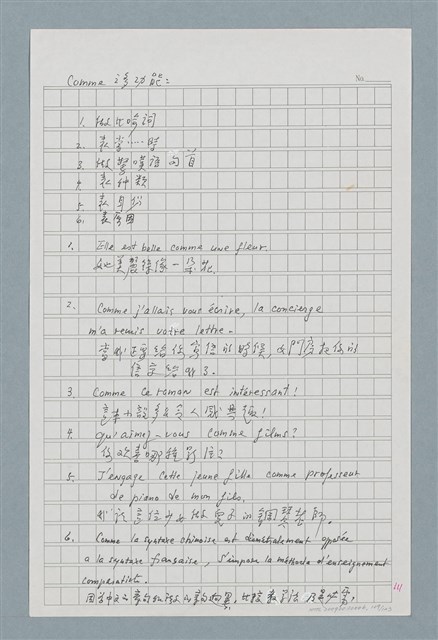 Comme 該功能:
No.
1. 做比喻词
2. 表当……時
3. 做驚嘆語句首
4. 表种类
5. 表身份
6. 表原因
1. Elle est belle comme une fleur.
她美麗得像一朵花.
2. Comme j'allais vous écrire, la concierge
m'a remis votre lettre.
當我正要給你寫信的時候, 女門房把你的
信交給我了.
3. Comme ce roman est intéressant!
這本小說多令人感興趣!
4. Qu'aimez-vous comme films?
你欢喜哪種影片?
5. J'engage cette jeune fille comme professeur
de piano de mon fils.
我請這位少女做兒子的鋼琴教師.
6. Comme la syntaxe chinoise est diamétralement opposée
à la syntaxe française, s'impose la méthode d'enseignement
comparatif.
因為中文之